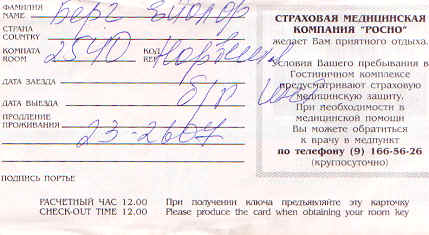 ФАМИЛИЯ
NAME Берг
СТРАНА
COUNTRY
КОМНАТА
ROOM 2540
ДАТА ЗАЕЗДА
ДАТА ВЫЕЗДА
ПРОДЛЕНИЕ
ПРОЖИВАНИЯ
23-2604
ПОДПИСЬ ПОРТЬЕ
СТРАХОВАЯ МЕДИЦИНСКАЯ
КОМПАНИЯ "РОСНО"
желает Вам приятного отдыха.
Условия Вашего пребывания в
Гостиничном комплексе
предусматривают страховую
медицинскую защиту.
При необходимости в
медицинской помощи
Вы можете обратиться
к врачу в медпункт
по телефону (9) 166-56-26
(круглосуточно)
РАСЧЕТНЫЙ ЧАС 12.00
CHECK-OUT TIME 12.00
При получении ключа предъявляйте эту карточку
Please produce the card when obtaining your room key